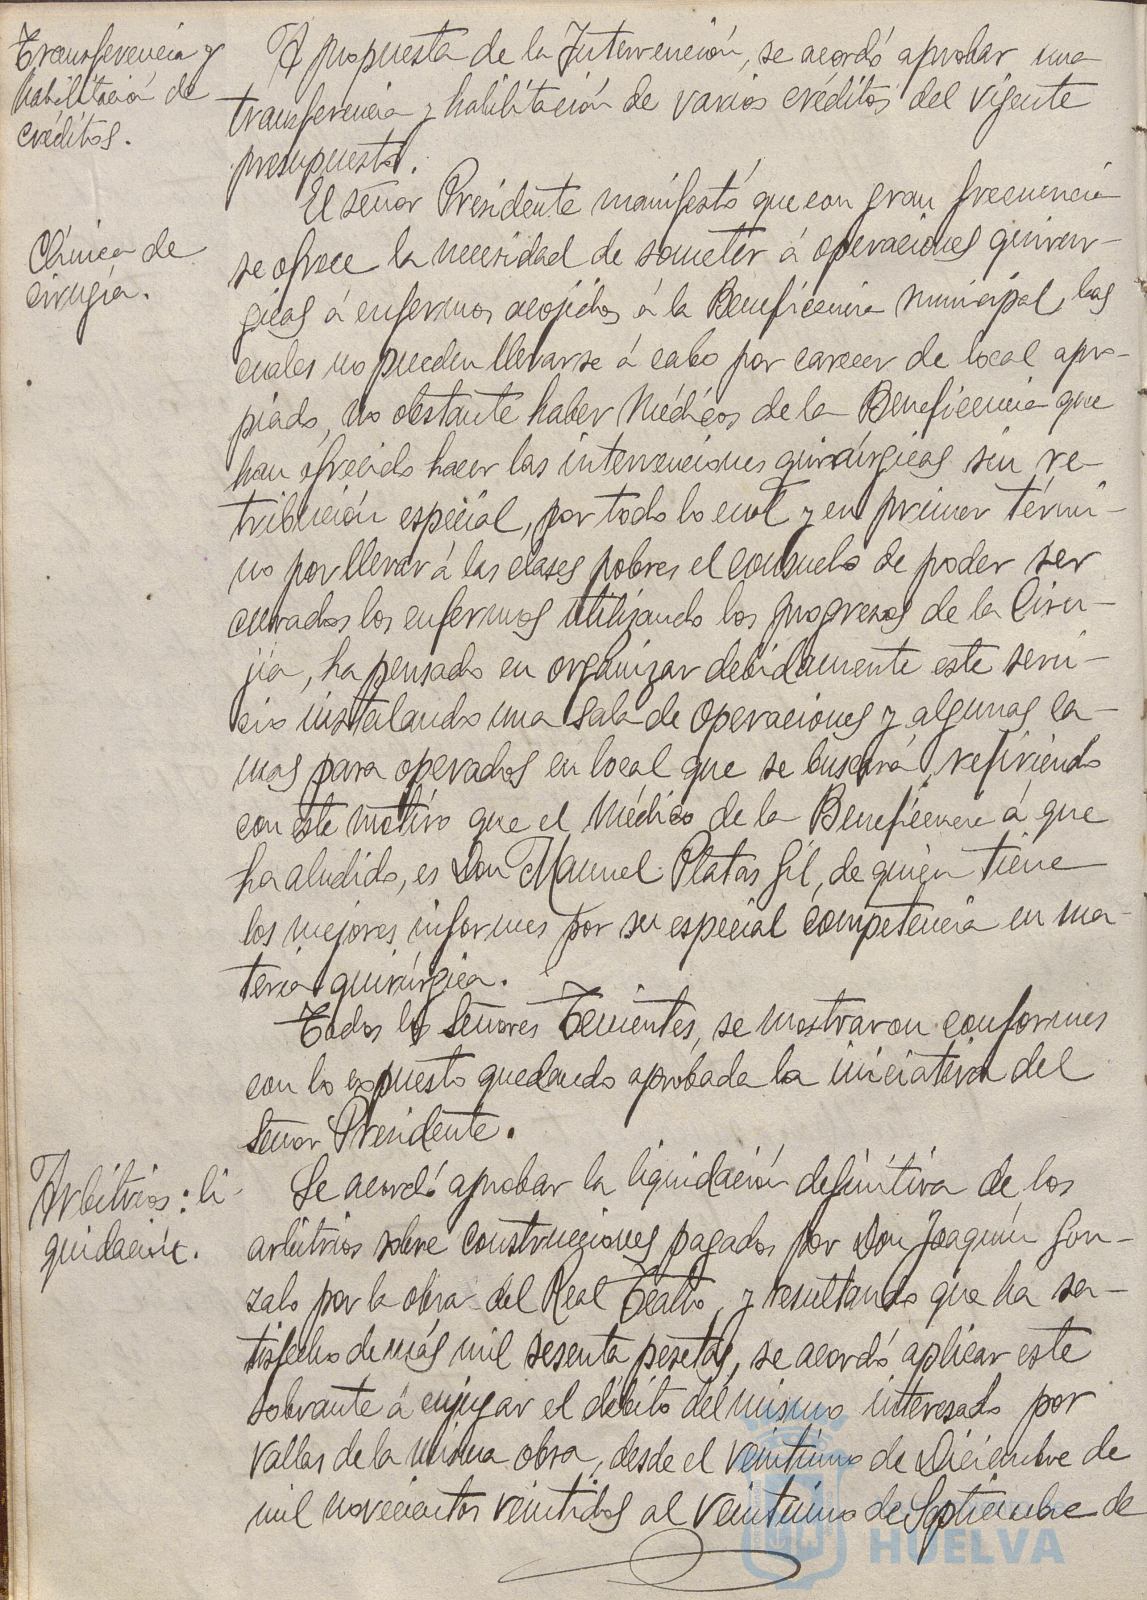 Transferencia y
habilitación de
créditos.
A propuesta de la Intervención, se acordó aprobar una
transferencia y habilitación de varios créditos del vigente
presupuesto.
Clínica de
cirugía.
El señor Presidente manifestó que con gran frecuencia
se ofrece la necesidad de someter á operaciones quirúr-
gicas á enfermos acojidos á la Beneficencia Municipal, las
cuales no pueden llevarse á cabo por carecer de local apro-
piado, no obstante haber Médicos de la Beneficencia que
han ofrecido hacer las intervenciones quirúrgicas sin re-
tribución especial, por todo lo cual y en primer térmi-
no por llevar á las clases pobres el consuelo de poder ser
curados los enfermos utilizando los progresos de la Ciru-
jía, ha pensado en organizar debidamente este servi-
cio instalando una sala de operaciones y algunas ca-
mas para operados en local que se buscará, refiriendo
con este motivo que el Médico de la Beneficencia á que
ha aludido, es Don Manuel Platas Gil, de quien tiene
los mejores informes por su especial competencia en ma-
teria quirúrgica.
Todos los Señores Tenientes, se mostraron conformes
con lo expuesto quedando aprobada la iniciativa del
Señor Presidente.
Arbitrios: li-
quidación.
Se acordó aprobar la liquidación definitiva de los
arbitrios sobre construcciones pagados por Don Joaquín Gon-
zalo por la obra del Real Teatro, y resultando que ha sa-
tisfecho de más mil sesenta pesetas, se acordó aplicar este
sobrante á enjugar el débito del mismo interesado por
vallas de la misma obra, desde el veintiuno de Diciembre de
mil novecientos veintidos al veintiuno de Septiembre de
HUELVA